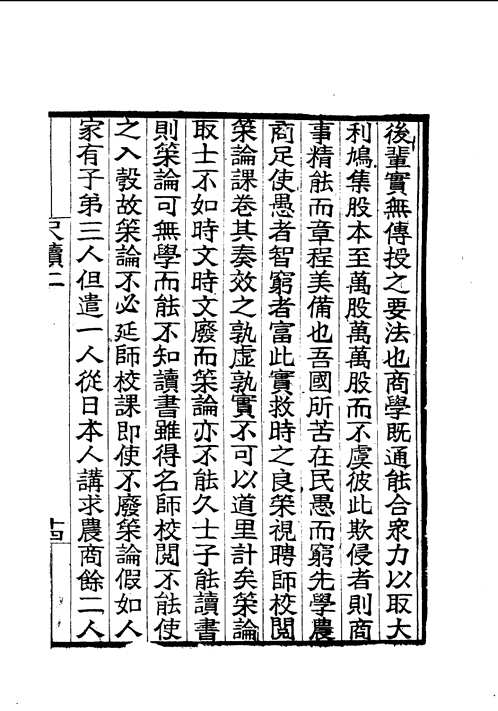 後輩實無傳授之要法也商學既通能合衆力以取大
利鳩集股本至萬股萬萬股而不虞彼此欺侵者則商
事精能而章程美備也吾國所苦在民愚而窮先學農
商足使愚者智窮者富此實救時之良筞視聘師校閲
筞論課卷其奏效之孰虛孰實不可以道里計矣筞論
取士不如時文時文廢而筞論亦不能久士子能讀書
則筞論可無學而能不知讀書雖得名師校閲不能使
之入彀故筞論不必延師校課即使不廢筞論假如人
家有子弟三人但遣一人從日本人講求農商餘二人
尺牘二
十四